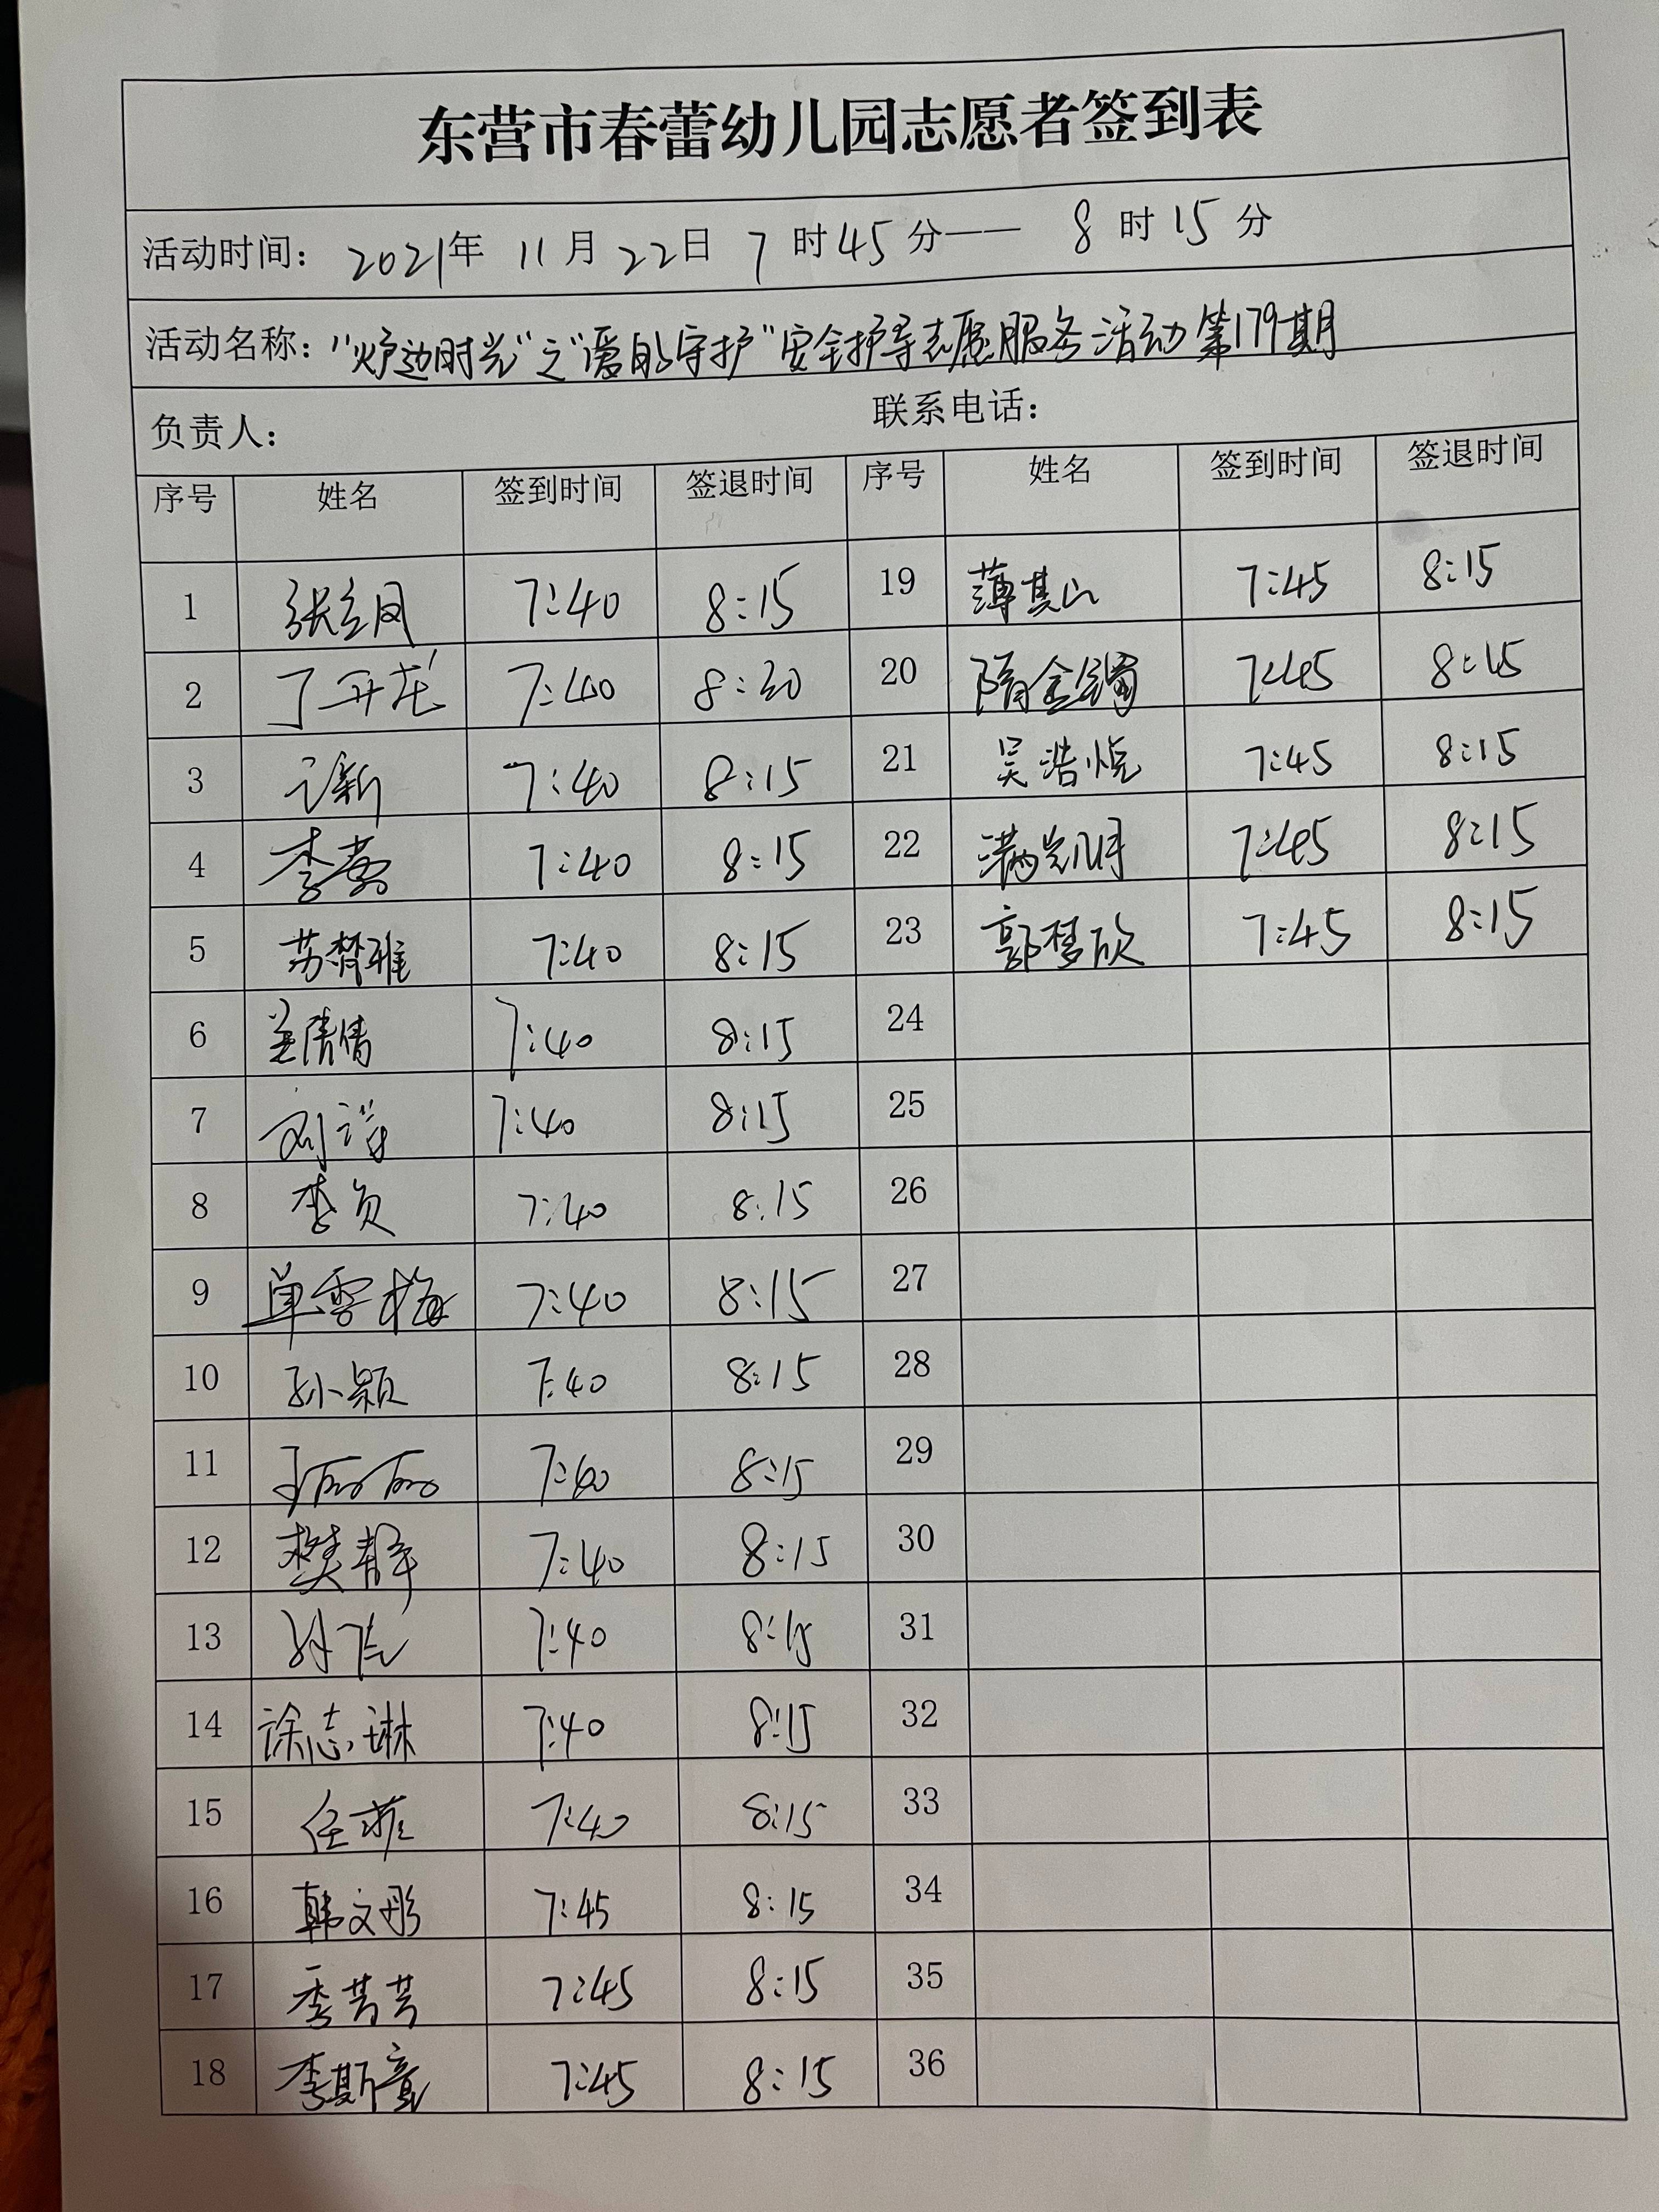 东营市春蕾幼儿园志愿者签到表
活动时间：2021年 11月 22日 7时45分—— 8时15分
活动名称："炉边时光"之"爱的守护"安全护导志愿服务活动第179期
负责人： 联系电话：
序号 姓名 签到时间 签退时间 序号 姓名 签到时间 签退时间
1 张立凤 7:40 8:15 19 薄其山 7:45 8:15
2 丁开花 7:40 8:30 20 隋金镯 7:45 8:15
3 7:40 8:15 21 吴浩悦 7:45 8:15
4 李莺 7:40 8:15 22 满凯月 7:45 8:15
5 苏梦雅 7:40 8:15 23 郭梦欣 7:45 8:15
6 姜倩倩 7:40 8:15 24
7 刘萍 7:40 8:15 25
8 李贞 7:40 8:15 26
9 单雪梅 7:40 8:15 27
10 孙颖 7:40 8:15 28
11 丽丽 7:40 8:15 29
12 樊静 7:40 8:15 30
13 7:40 8:15 31
14 徐志琳 7:40 8:15 32
15 任菲 7:40 8:15 33
16 韩文彤 7:45 8:15 34
17 季芸芸 7:45 8:15 35
18 李斯童 7:45 8:15 36